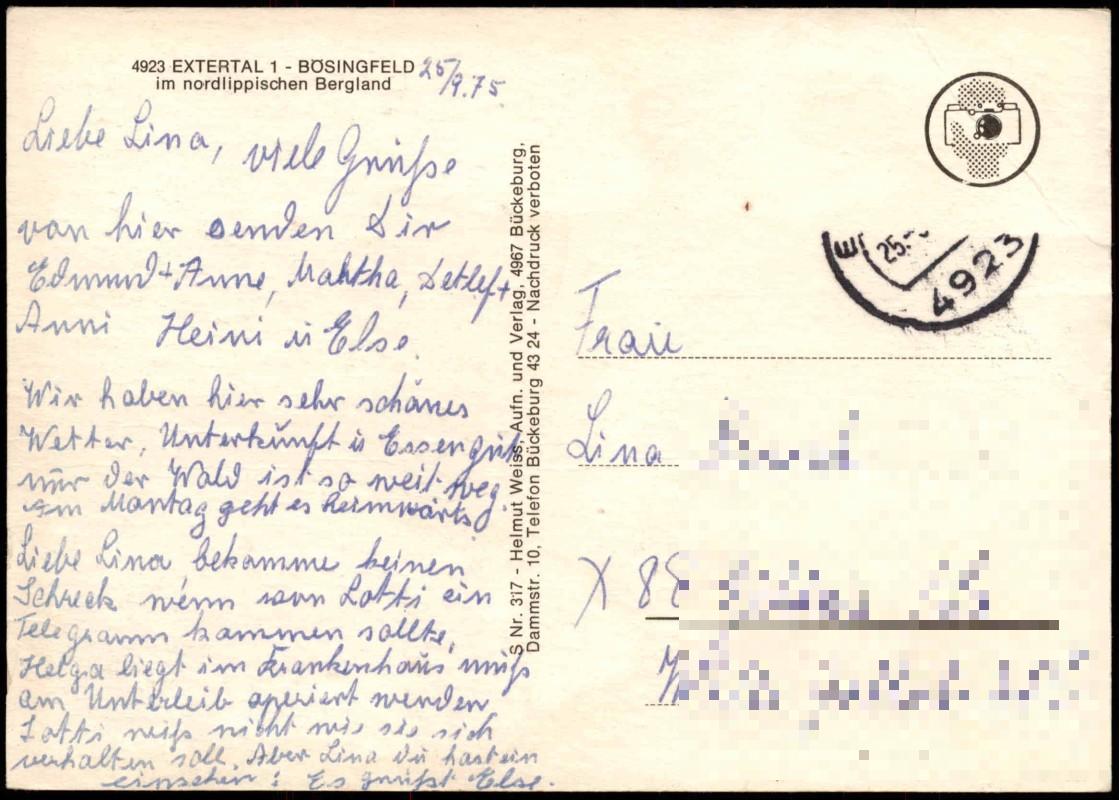 4923 EXTERTAL 1 - BÖSINGFELD
im nordlippischen Bergland
25/9.75
Liebe Lina, viele Grüße
von hier senden Dir
Edmund + Anne, Martha, Detlef +
Anni Heini u Else.
Wir haben hier sehr schönes
Wetter, Unterkunft u Essen gut
nur der Wald ist so weit weg
am Montag geht es heimwärts
Liebe Lina, bekomme keinen
Schreck wenn von Lotti ein
Telegramm kommen sollte,
Helga liegt im Krankenhaus, muß
am Unterleib operiert werden
Lotti weiß nicht wie sie sich
verhalten soll. Aber Lina du hast ein
einsehen! Es grüßt Else.
S Nr. 317 - Helmut Weiss, Aufn. und Verlag, 4967 Bückeburg,
Dammstr. 10, Telefon Bückeburg 43 24 - Nachdruck verboten
25.
4923
Frau
Lina
X 88